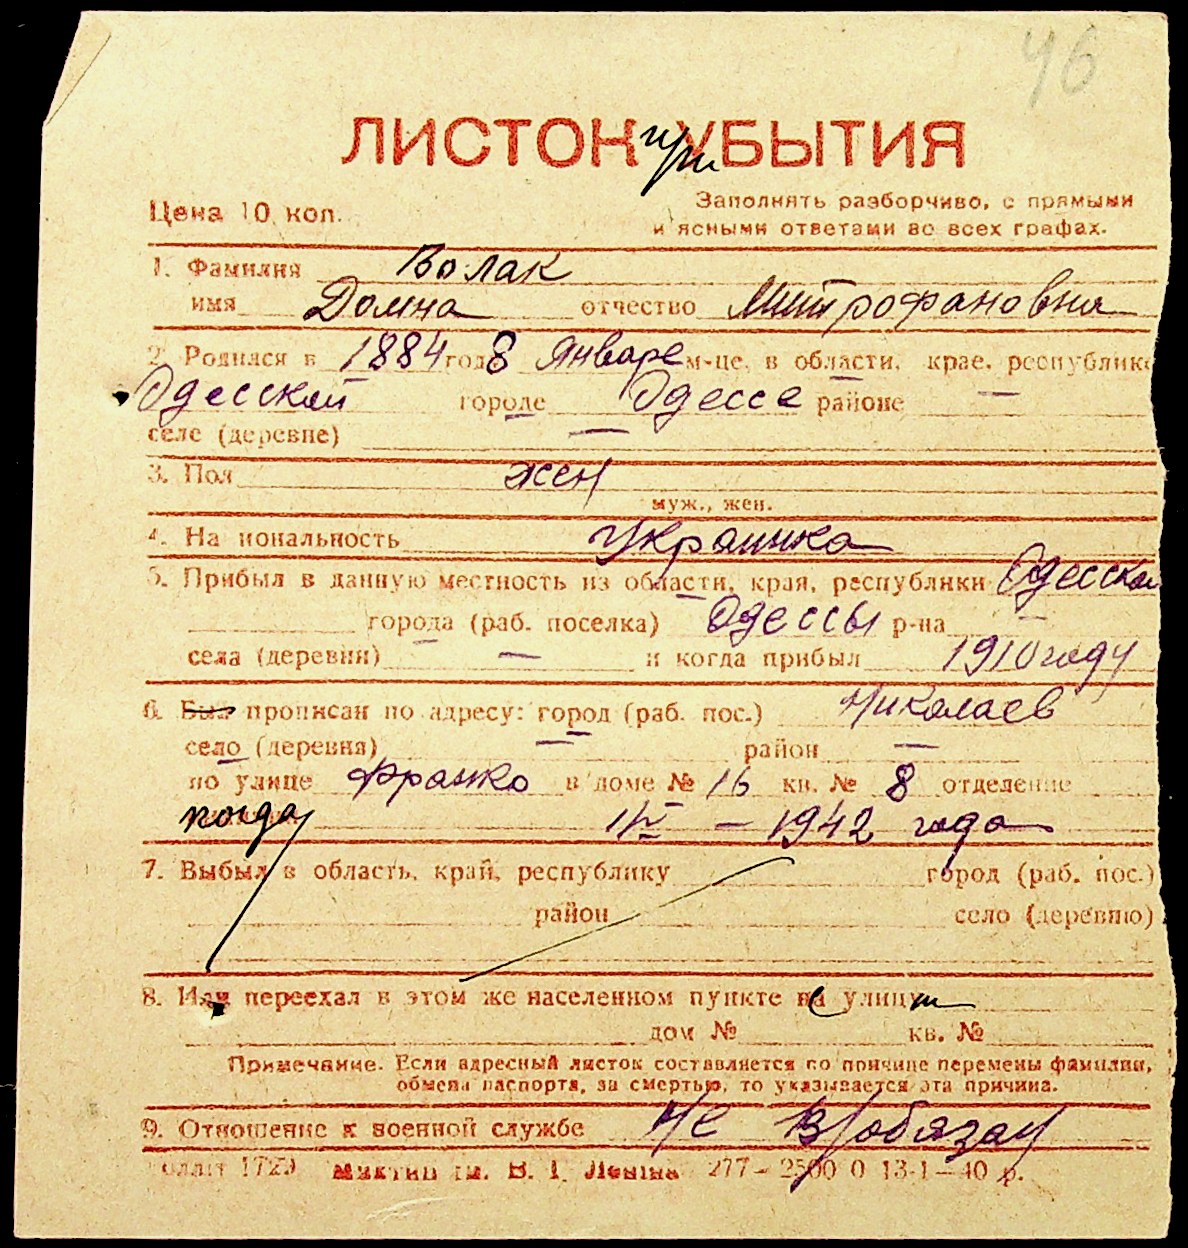 46
ЛИСТОК при УБЫТИЯ
Цена 10 коп.
Заполнять разборчиво, с прямыми
и ясными ответами во всех графах.
1. Фамилия Волак
имя Домна отчество Митрофановна
2. Родился в 1884 год 8 Январе м-це, в области, крае, республике
Одесской городе Одессе районе —
селе (деревне) —
3. Пол жен
муж., жен.
4. На иональность Украинка
5. Прибыл в данную местность из области, края, республики Одесской
города (раб. поселка) Одессы р-на —
села (деревни) — и когда прибыл 1910 году
6. Был прописан по адресу: город (раб. пос.) Николаев
село (деревня) — район —
по улице Франко в доме № 16 кв. № 8 отделение
когда — 1942 года
7. Выбыл в область, край, республику город (раб. пос.)
район село (деревню)
8. Или переехал в этом же населенном пункте с улицы
дом № кв. №
Примечание. Если адресный листок составляется по причине перемены фамилии,
обмена паспорта, за смертью, то указывается эта причина.
9. Отношение к военной службе не в/обязан
1729 В. І. Леніна 277 — 2500 0 13-1—40 р.